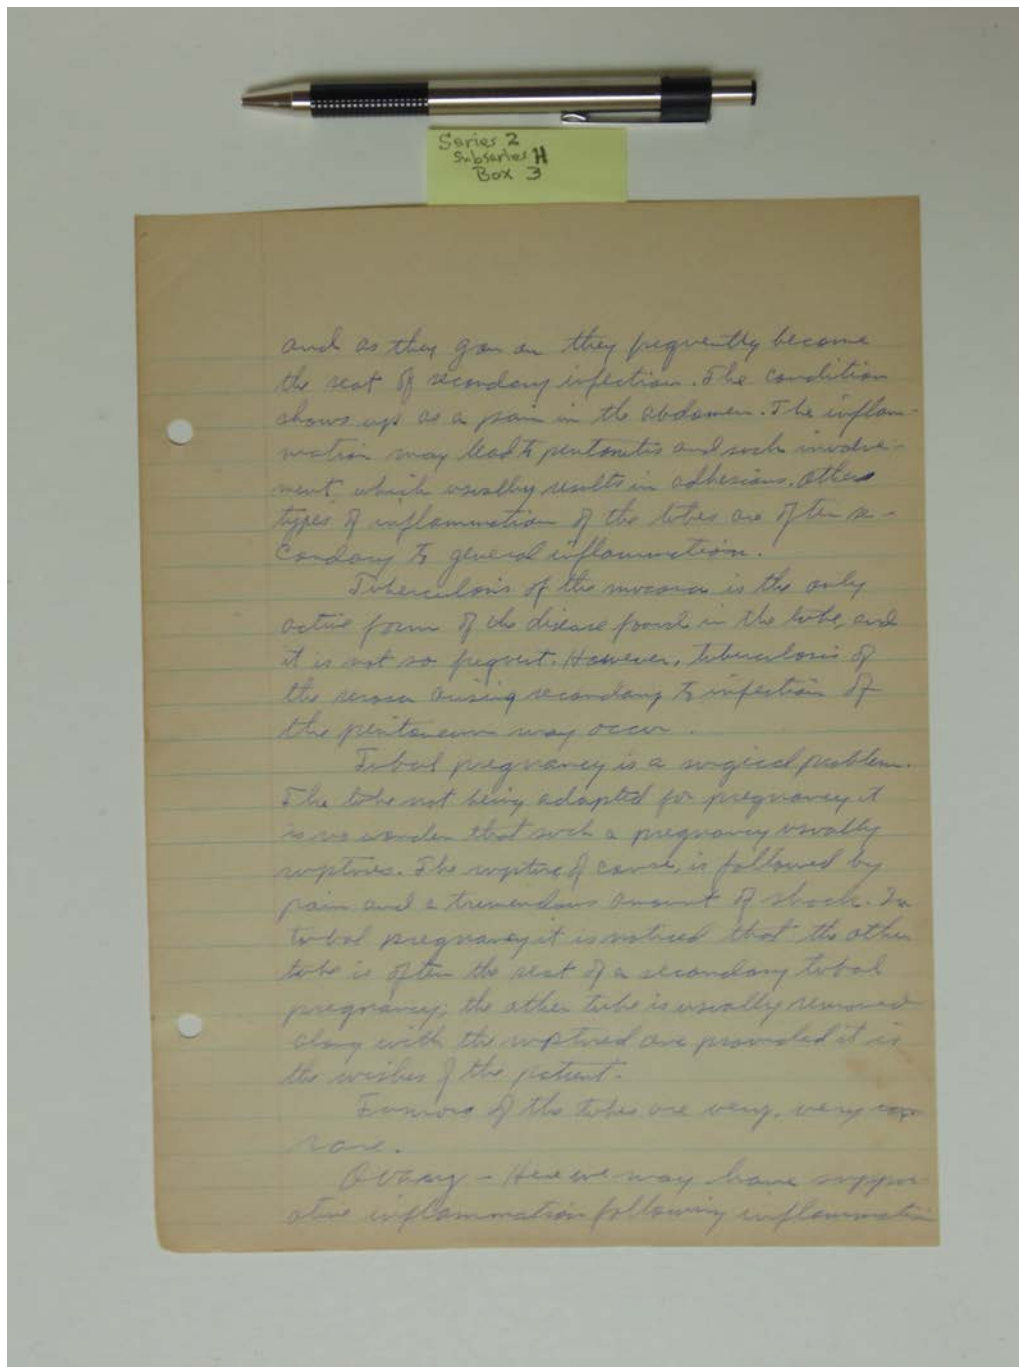 Series 2
Subseries H
Box 3
and as they grow on they frequently become
the seat of secondary infection. The condition
shows up as a pain in the abdomen. The inflam-
mation may lead to peritonitis and such involve-
ment, which usually results in adhesions. Other
types of inflammation of the tubes are often se-
condary to general inflammation.
Tuberculosis of the mucosa is the only
active form of the disease found in the tube, and
it is not so frequent. However, tuberculosis of
the serosa arising secondary to infection of
the peritoneum may occur.
Tubal pregnancy is a surgical problem.
The tube not being adapted for pregnancy it
is no wonder that such a pregnancy usually
ruptures. The rupture of course, is followed by
pain and a tremendous amount of shock. In
tubal pregnancy it is noticed that the other
tube is often the seat of a secondary tubal
pregnancy; the other tube is usually removed
along with the ruptured one provided it is
the wishes of the patient.
Tumors of the tubes are very, very
rare.
Ovary - Here we may have suppur-
ative inflammation following inflammation